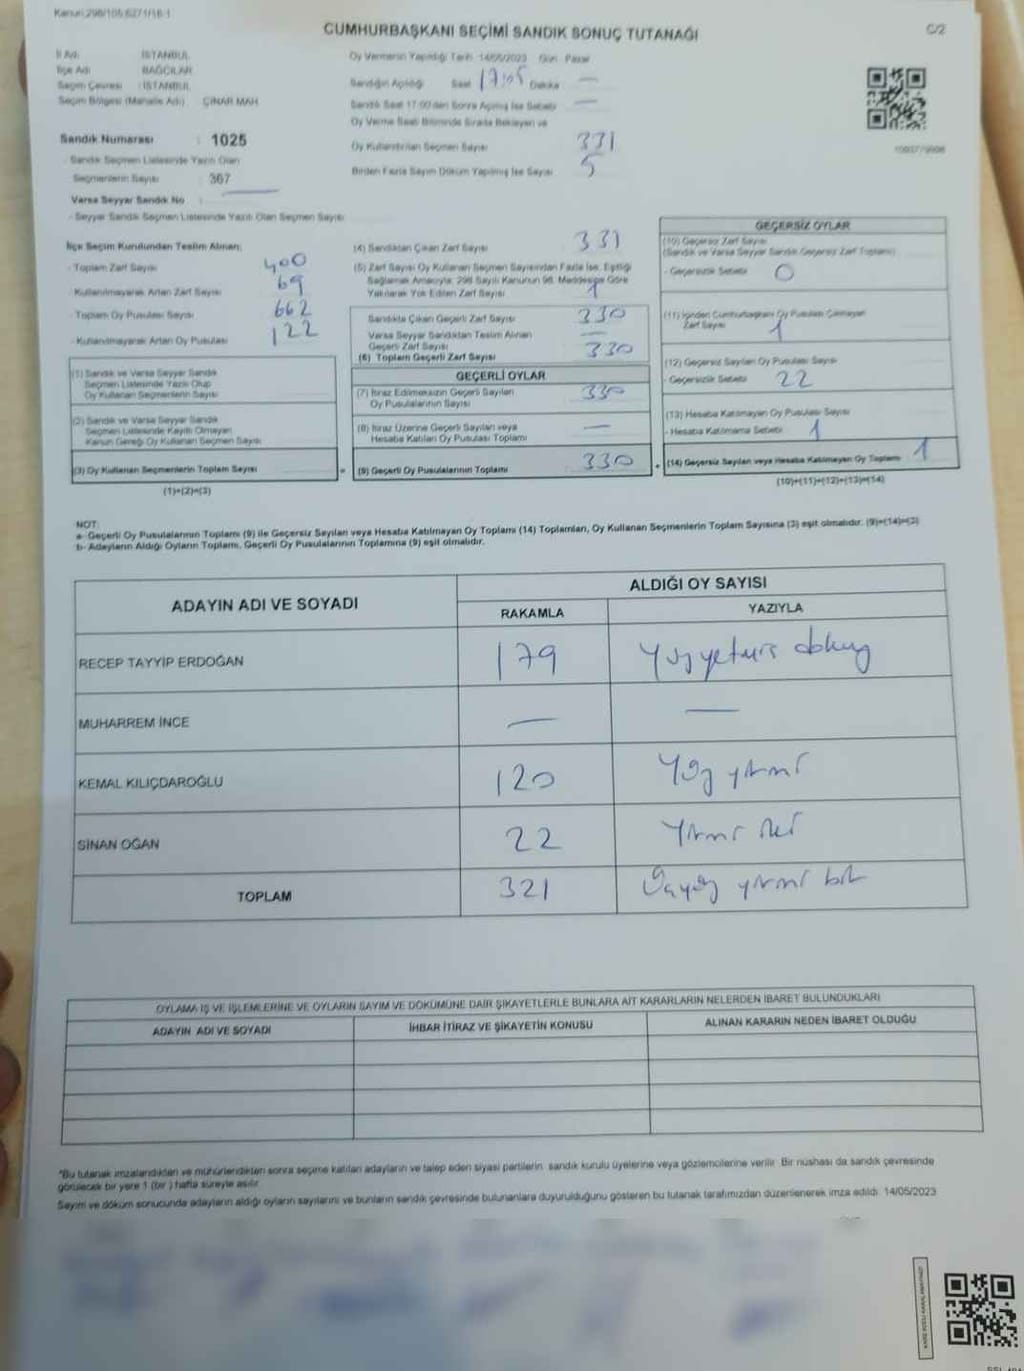 Kanun:298/105;6271/16-1
CUMHURBAŞKANI SEÇİMİ SANDIK SONUÇ TUTANAĞI
C/2
İl Adı : İSTANBUL
İlçe Adı : BAĞCILAR
Seçim Çevresi : İSTANBUL
Seçim Bölgesi (Mahalle Adı) : ÇINAR MAH.
Sandık Numarası : 1025
- Sandık Seçmen Listesinde Yazılı Olan
Seçmenlerin Sayısı : 367
Varsa Seyyar Sandık No :
- Seyyar Sandık Seçmen Listesinde Yazılı Olan Seçmen Sayısı:
Oy Vermenin Yapıldığı Tarih: 14/05/2023 Gün: Pazar
Sandığın Açıldığı Saat 17:05 Dakika —
Sandık Saat 17:00'den Sonra Açılmış İse Sebebi —
Oy Verme Saati Bitiminde Sırada Bekleyen ve
Oy Kullandırılan Seçmen Sayısı 331
Birden Fazla Sayım Döküm Yapılmış İse Sayısı 5
İlçe Seçim Kurulundan Teslim Alınan;
- Toplam Zarf Sayısı 400
- Kullanılmayarak Artan Zarf Sayısı 69
- Toplam Oy Pusulası Sayısı 662
- Kullanılmayarak Artan Oy Pusulası 122
(1) Sandık ve Varsa Seyyar Sandık
Seçmen Listesinde Yazılı Olup
Oy Kullanan Seçmenlerin Sayısı
(2) Sandık ve Varsa Seyyar Sandık
Seçmen Listesinde Kayıtlı Olmayan
Kanun Gereği Oy Kullanan Seçmen Sayısı
(3) Oy Kullanan Seçmenlerin Toplam Sayısı
(1)+(2)=(3)
(4) Sandıktan Çıkan Zarf Sayısı 331
(5) Zarf Sayısı Oy Kullanan Seçmen Sayısından Fazla İse, Eşitliği
Sağlamak Amacıyla, 298 Sayılı Kanunun 98. Maddesine Göre
Yakılarak Yok Edilen Zarf Sayısı 1
Sandıkta Çıkan Geçerli Zarf Sayısı 330
Varsa Seyyar Sandıktan Teslim Alınan
Geçerli Zarf Sayısı —
(6) Toplam Geçerli Zarf Sayısı 330
GEÇERLİ OYLAR
(7) İtiraz Edilmeksizin Geçerli Sayılan
Oy Pusulalarının Sayısı 330
(8) İtiraz Üzerine Geçerli Sayılan veya
Hesaba Katılan Oy Pusulası Toplamı —
(9) Geçerli Oy Pusulalarının Toplamı 330
GEÇERSİZ OYLAR
(10) Geçersiz Zarf Sayısı
(Sandık ve Varsa Seyyar Sandık Geçersiz Zarf Toplamı)
- Geçersizlik Sebebi 0
(11) İçinden Cumhurbaşkanı Oy Pusulası Çıkmayan
Zarf Sayısı 1
(12) Geçersiz Sayılan Oy Pusulası Sayısı
- Geçersizlik Sebebi 22
(13) Hesaba Katılmayan Oy Pusulası Sayısı
- Hesaba Katılmama Sebebi 1
(14) Geçersiz Sayılan veya Hesaba Katılmayan Oy Toplamı 1
(10)+(11)+(12)+(13)=(14)
NOT:
a- Geçerli Oy Pusulalarının Toplamı (9) ile Geçersiz Sayılan veya Hesaba Katılmayan Oy Toplamı (14) Toplamları, Oy Kullanan Seçmenlerin Toplam Sayısına (3) eşit olmalıdır. (9)+(14)=(3)
b- Adayların Aldığı Oyların Toplamı, Geçerli Oy Pusulalarının Toplamına (9) eşit olmalıdır.
ADAYIN ADI VE SOYADI
ALDIĞI OY SAYISI
RAKAMLA YAZIYLA
RECEP TAYYİP ERDOĞAN 179 Yüz yetmiş dokuz
MUHARREM İNCE — —
KEMAL KILIÇDAROĞLU 120 Yüz yirmi
SİNAN OĞAN 22 Yirmi iki
TOPLAM 321 Üçyüz yirmi bir
OYLAMA İŞ VE İŞLEMLERİNE VE OYLARIN SAYIM VE DÖKÜMÜNE DAİR ŞİKAYETLERLE BUNLARA AİT KARARLARIN NELERDEN İBARET BULUNDUKLARI
ADAYIN ADI VE SOYADI
İHBAR İTİRAZ VE ŞİKAYETİN KONUSU
ALINAN KARARIN NEDEN İBARET OLDUĞU
*Bu tutanak imzalandıktan ve mühürlendikten sonra seçime katılan adayların ve talep eden siyasi partilerin sandık kurulu üyelerine veya gözlemcilerine verilir. Bir nüshası da sandık çevresinde
görülecek bir yere 1 (bir) hafta süreyle asılır.
Sayım ve döküm sonucunda adayların aldığı oyların sayılarını ve bunların sandık çevresinde bulunanlara duyurulduğunu gösteren bu tutanak tarafımızdan düzenlenerek imza edildi. 14/05/2023